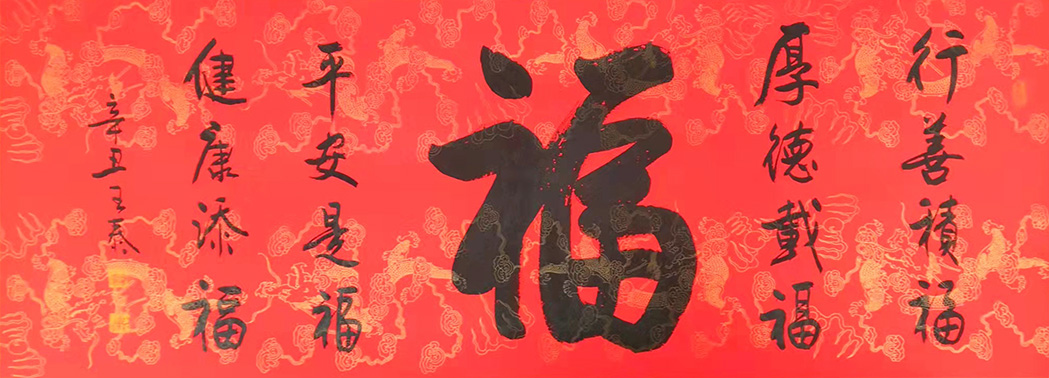 行善積福
厚德戴福
福
平安是福
健康添福
辛丑王泰